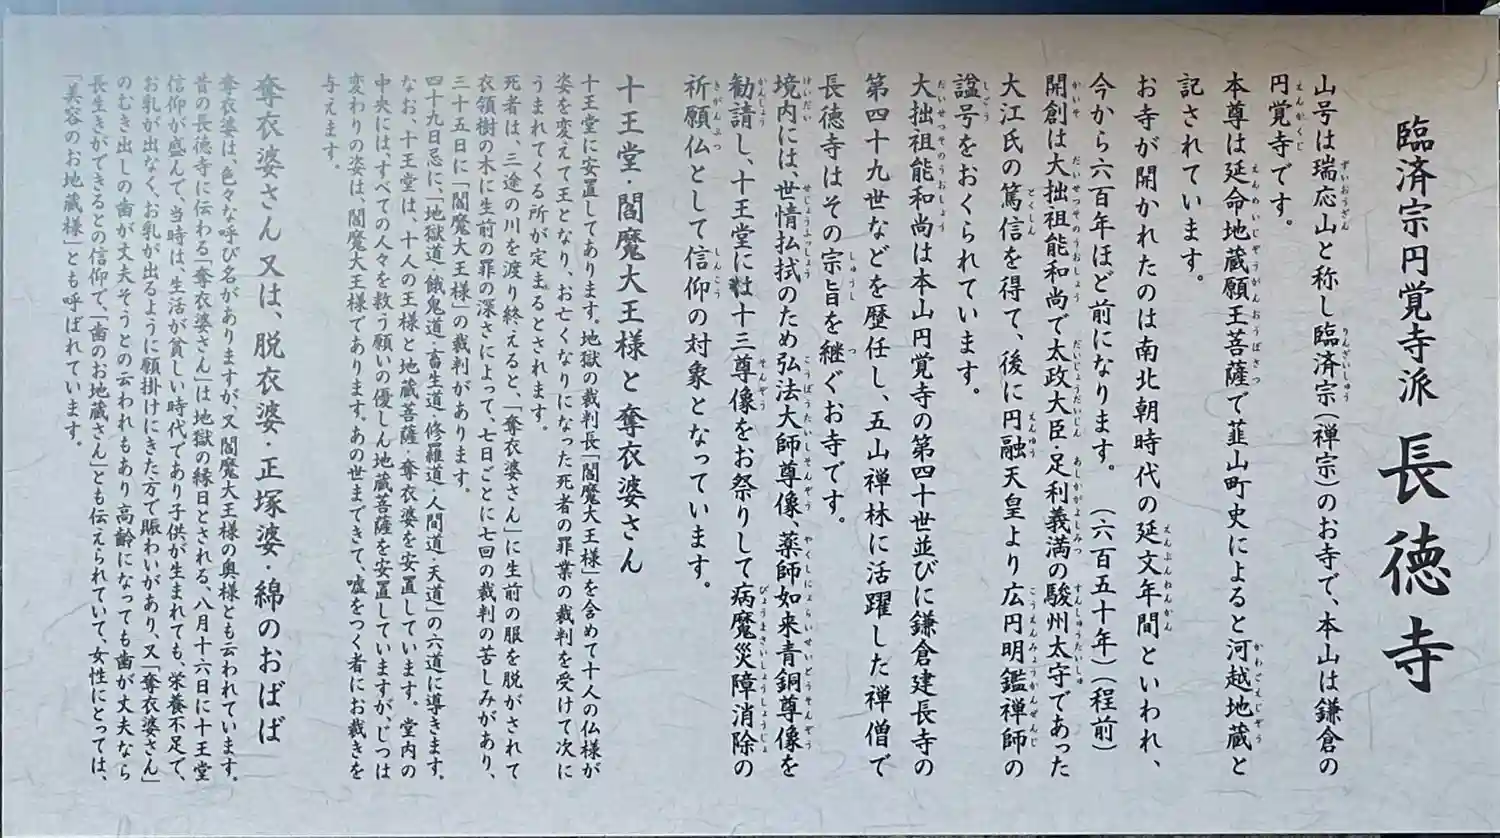 臨済宗円覚寺派 長徳寺
山号は瑞応山と称し臨済宗(禅宗)のお寺で、本山は鎌倉の
円覚寺です。
本尊は延命地蔵願王菩薩で韮山町史によると河越地蔵と
記されています。
お寺が開かれたのは南北朝時代の延文年間といわれ、
今から六百年ほど前になります。(六百五十年)(程前)
開創は大拙祖能和尚で太政大臣・足利義満の駿州太守であった
大江氏の篤信を得て、後に円融天皇より広円明鑑禅師の
諡号をおくられています。
大拙祖能和尚は本山円覚寺の第四十世並びに鎌倉建長寺の
第四十九世などを歴任し、五山禅林に活躍した禅僧で
長徳寺はその宗旨を継ぐお寺です。
境内には、世情払拭のため弘法大師尊像、薬師如来青銅尊像を
勧請し、十王堂には十三尊像をお祭りして病魔災障消除の
祈願仏として信仰の対象となっています。
十王堂・閻魔大王様と奪衣婆さん
十王堂に安置してあります。地獄の裁判長「閻魔大王様」を含めて十人の仏様が
姿を変えて王となり、お亡くなりになった死者の罪業の裁判を受けて次に
うまれてくる所が定まるとされます。
死者は、三途の川を渡り終えると、「奪衣婆さん」に生前の服を脱がされて
衣領樹の木に生前の罪の深さによって、七日ごとに七回の裁判の苦しみがあり、
三十五日に「閻魔大王様」の裁判があります。
四十九日忌に、「地獄道・餓鬼道・畜生道・修羅道・人間道・天道」の六道に導きます。
なお、十王堂は、十人の王様と地蔵菩薩・奪衣婆を安置しています。堂内の
中央には、すべての人々を救う願いの優しん地蔵菩薩を安置していますが、じつは
変わりの姿は、閻魔大王様であります。あの世まできて、嘘をつく者にお裁きを
与えます。
奪衣婆さん又は、脱衣婆・正塚婆・綿のおばば
奪衣婆は、色々な呼び名がありますが、又 閻魔大王様の奥様とも云われています。
昔の長徳寺に伝わる「奪衣婆さん」は地獄の縁日とされる、八月十六日に十王堂
信仰が盛んで、当時は、生活が貧しい時代であり子供が生まれても、栄養不足で、
お乳が出なく、お乳が出るように願掛けにきた方で賑わいがあり、又「奪衣婆さん」
のむき出しの歯が丈夫そうとの云われもあり高齢になっても歯が丈夫なら
長生きができるとの信仰で、「歯のお地蔵さん」とも伝えられていて、女性にとっては、
「美容のお地蔵様」とも呼ばれています。